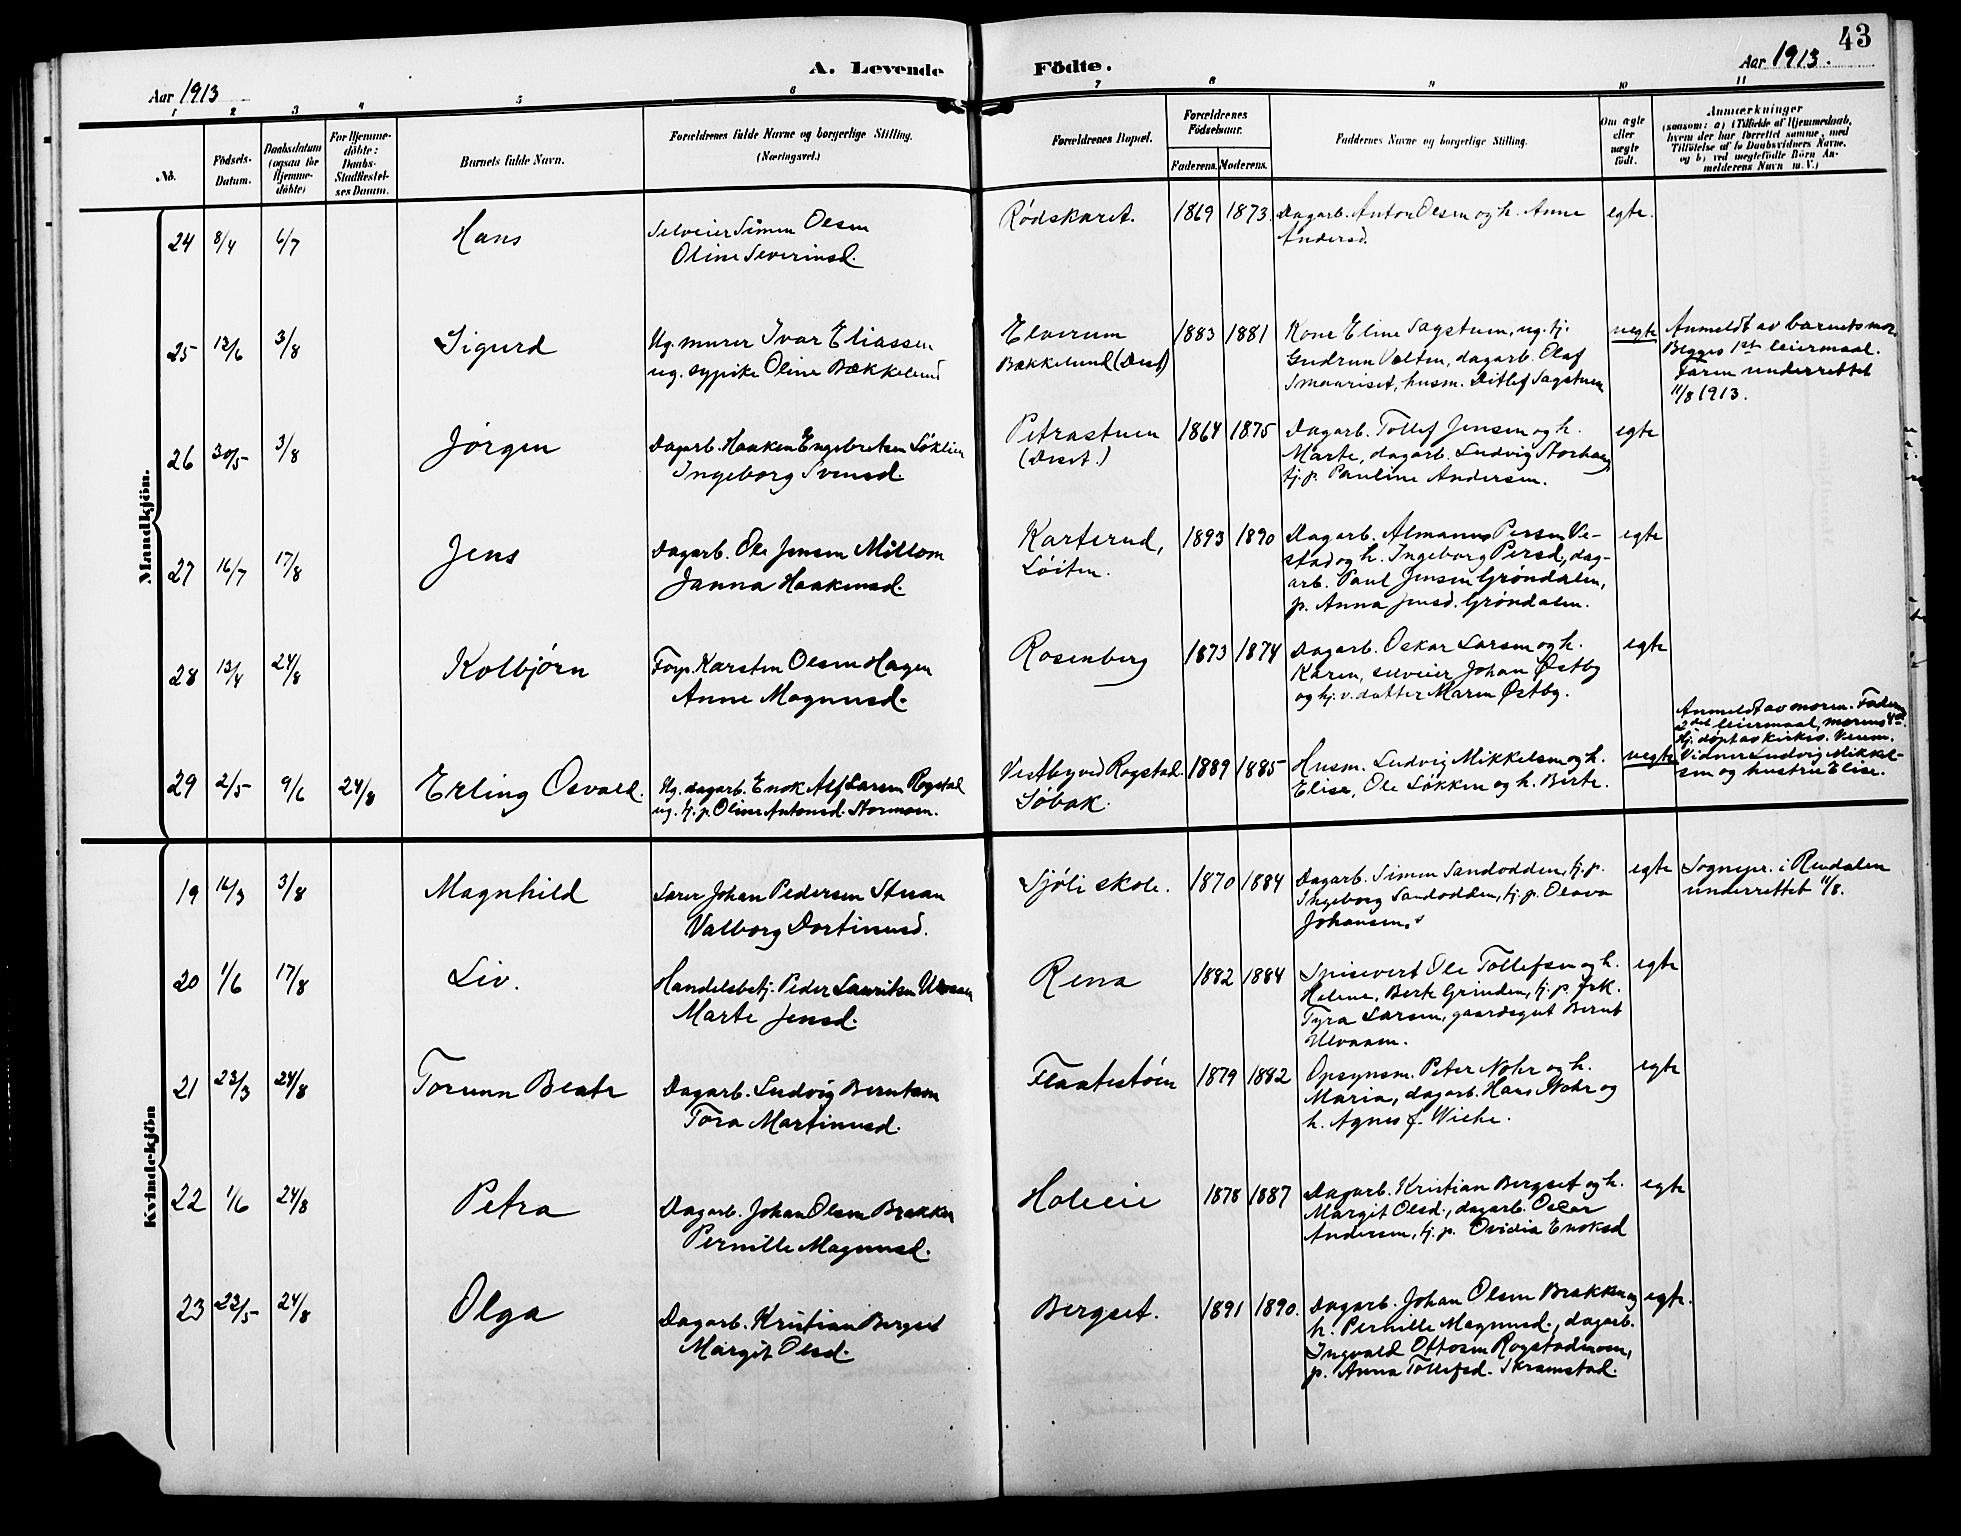 43
A. Levende Födte.
Aar 1913
Aar 1913.
1 2 3 4 5 6 7 8 9 10 11
No.
Fødsels-
Datum.
Daabsdatum
(ogsaa for
Hjemme-
döbte)
For Hjemme-
döbte:
Daabs-
Stadfæstel-
ses Datum.
Barnets fulde Navn.
Forældrenes fulde Navne og borgerlige Stilling.
(Næringsvei.)
Forældrenes Bopæl.
Forældrenes
Fødselsaar.
Faderens. Moderens.
Faddernes Navne og borgerlige Stilling.
Om ægte
eller
uægte
født.
Anmærkninger
(saasom: a) i Tilfælde af Hjemmedaab,
hvem der har forrettet samme, med
Tilføielse af to Daabsvidners Navne,
og b) ved uægtefødte Börn An-
melderens Navn m. V.)
Mandkjön.
24 8/4 6/7 Hans
Selveier Simen Olsen
Oline Severinsd.
Rødskaret. 1869 1873
Dagarb. Anton Olsen og h. Anne
Andersd.
egte.
25 12/6 3/8 Sigurd
Ug. murer Ivar Eliassen
ug. sypike Oline Bækkelund
Elverum
Bækkelund (Øset)
1883 1881
Kone Eline Sagstuen, ug. tj.
Gudrun Velten, dagarb. Olaf
Smaariset, husm. Ditlef Sagstuen
uegte
Anmeldt av barnets mor.
Begges 1ste leiermaal.
Faren underrettet
11/8 1913.
26 30/5 3/8 Jørgen
Dagarb. Haaken Engebretsen Løklien
Ingeborg Svensd.
Petrastuen
(Øset.)
1864 1875
Dagarb. Tollef Jensen og h.
Marte, dagarb. Ludvig Storhaug
tj. p. Pauline Andersen.
egte
27 16/7 17/8 Jens
Dagarb. Ole Jensen Millom
Janna Haakensd.
Karterud,
Løiten.
1893 1890
Dagarb. Almannes Persen Ve-
stad og h. Ingeborg Persd., dag-
arb. Paul Jensen Grøndalen,
p. Anna Jensd. Grøndalen.
egte
28 13/4 24/8 Kolbjørn
Forp. Karsten Olsen Hagen
Anne Magnusd.
Rosenberg 1873 1874
Dagarb. Oskar Larsen og h.
Karen, selveier Johan Østby
og hj. v. datter Maren Østby.
egte
29 2/5 9/6 24/8 Erling Osvald
Ug. dagarb. Enok Alf Larsen Rogstad
ug. tj. p. Oline Antonsd. Stormoen.
Vestby ved Rogstad
Søbak.
1889 1885
Husm. Ludvig Mikkelsen og h.
Elise, Ole Løkken og h. Berte.
uegte
Anmeldt av moren. Faderns
2det leiermaal, morens 4de.
Hj. døpt av kirkes. Veum.
Vidner Ludvig Mikkel-
sen og hustru Elise.
Kvindekjön
19 16/3 3/8 Magnhild
Lærer Johan Pedersen Stuan
Valborg Dortinusd.
Sjøli skole. 1870 1884
Dagarb. Simen Sandodden, tj. p.
Ingeborg Sandodden, tj. p. Olava
Johansen.
egte
Sognepr. i Rendalen
underrettet 11/8.
20 1/6 17/8 Liv.
Handelsbetj. Peder Lauritsen Ulvaaen
Marte Jensd.
Rena 1882 1884
Spisevert Ole Tollefsen og h.
Helene, Berte Grinden, tj. p. frk.
Tyra Larsen, gaardsgut Bernt
Ulvaaen.
egte
21 23/3 24/8 Torunn Beate
Dagarb. Ludvig Berntsen
Tora Martinusd.
Flaatestøen 1879 1882
Opsynsm. Peter Nohr og h.
Maria, dagarb. Hans Nohr og
h. Agnes f. Wiehe.
egte
22 1/6 24/8 Petra
Dagarb. Johan Olsen Brækken
Pernille Magnusd.
Holeeie 1878 1887
Dagarb. Kristian Bergset og h.
Margit Olsd., dagarb. Oscar
Andersen, tj. p. Ovidia Enoksd
egte
23 22/5 24/8 Olga
Dagarb. Kristian Bergset
Margit Olsd.
Bergset. 1891 1890.
Dagarb. Johan Olsen Brækken og
h. Pernille Magnusd., dagarb.
Ingvald Ottosen Rogstadmoen,
p. Anna Tollefsd. Skramstad.
egte.